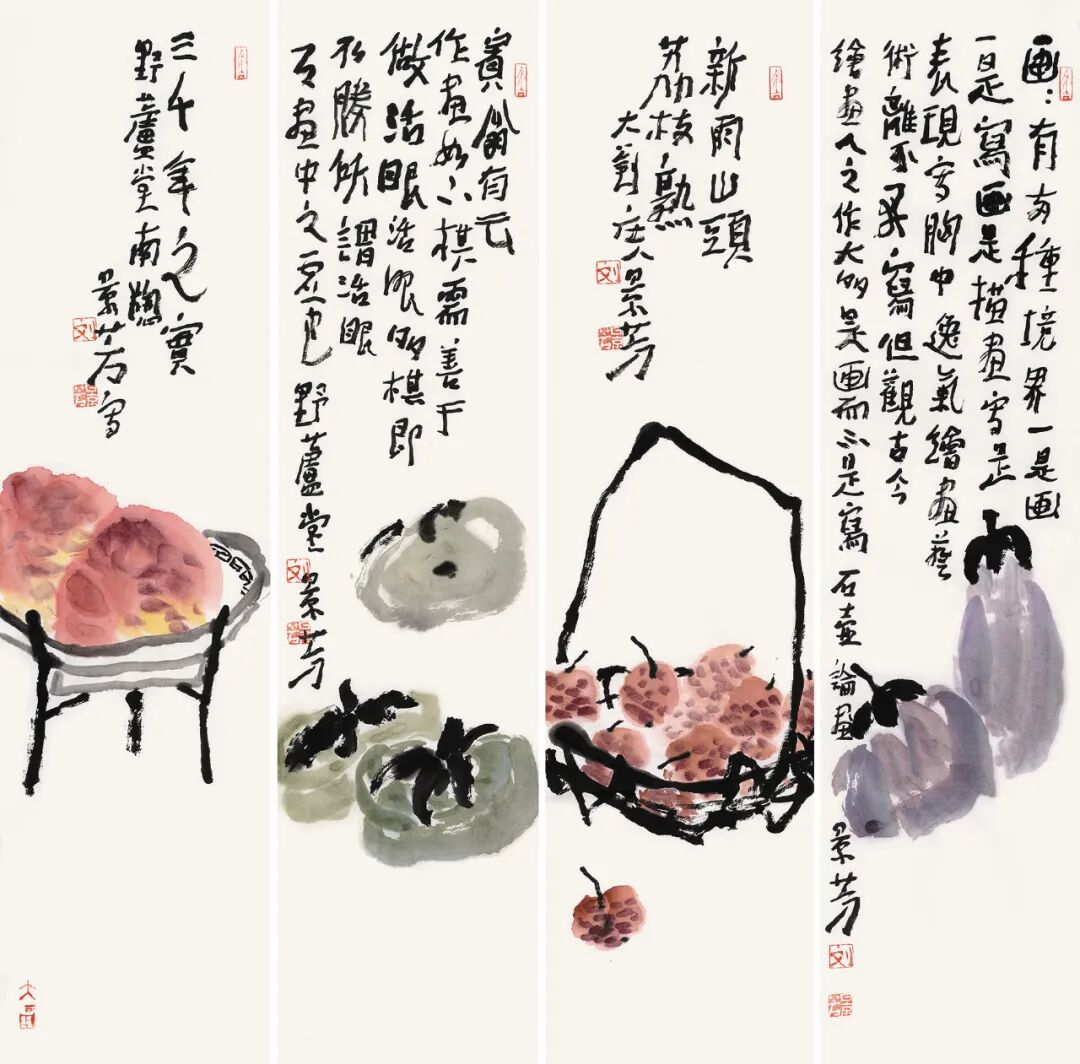 画：有两種境界一是画
一是寫画是描畫写是
表現写胸中逸氣繪畫藝
術離不寫但觀古今
繪畫人之作大多是画而不是寫 石壶論画
景芳
刘
新雨山頭
荔枝熟
大劉庄人景芳
刘
賓翁有云
作畫如下棋需善于
做活眼活眼多棋即
勝所謂活眼
乃畫中之虚也 野蘆堂 景芳
刘
三千年之實
野蘆堂南牕
景芳写
刘